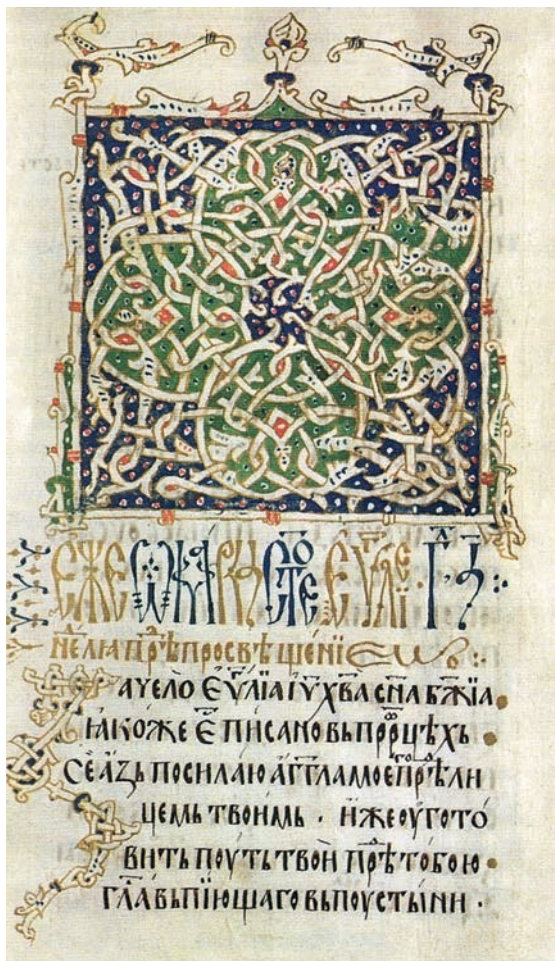 ЕЖЕ Ѿ МАРКА СТОЕ ЕѴⷢЛІЕ
неⷣлꙗ прⷣѣ просвѣщенїемь
Зачело єѵⷢ҇лїа іѵ҃ х҃ва сн҃а бж҃їа
ꙗкоже єⷭ҇ писано вь прⷪ҇рцѣхь
се азь посилаю агг҃ла моего прѣⷣ ли
цемь твоимь · иже оугото
вить поуть твои прѣⷣ тобою
гл҃а вьпїющаго вь поустыни ·